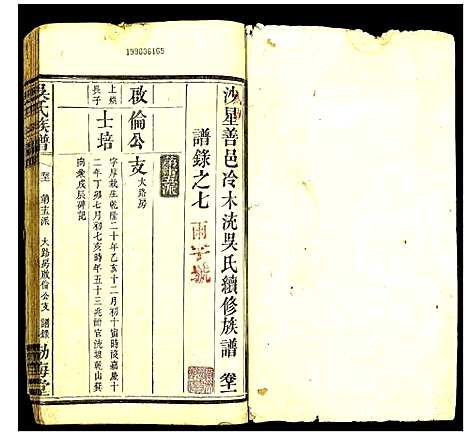 199036165
沙星善邑冷木沈吳氏續修族譜
譜錄之七
雨字號
第十五派
啟倫公支大路房
上燦長子
士培
字厚栽生乾隆二十年乙亥十二月初十寅時沒嘉慶十
二年丁卯七月初七亥時年五十三
向兼戊辰碑記
吳氏族譜
第十五派
大路房啟倫公支
譜錄
渤海堂